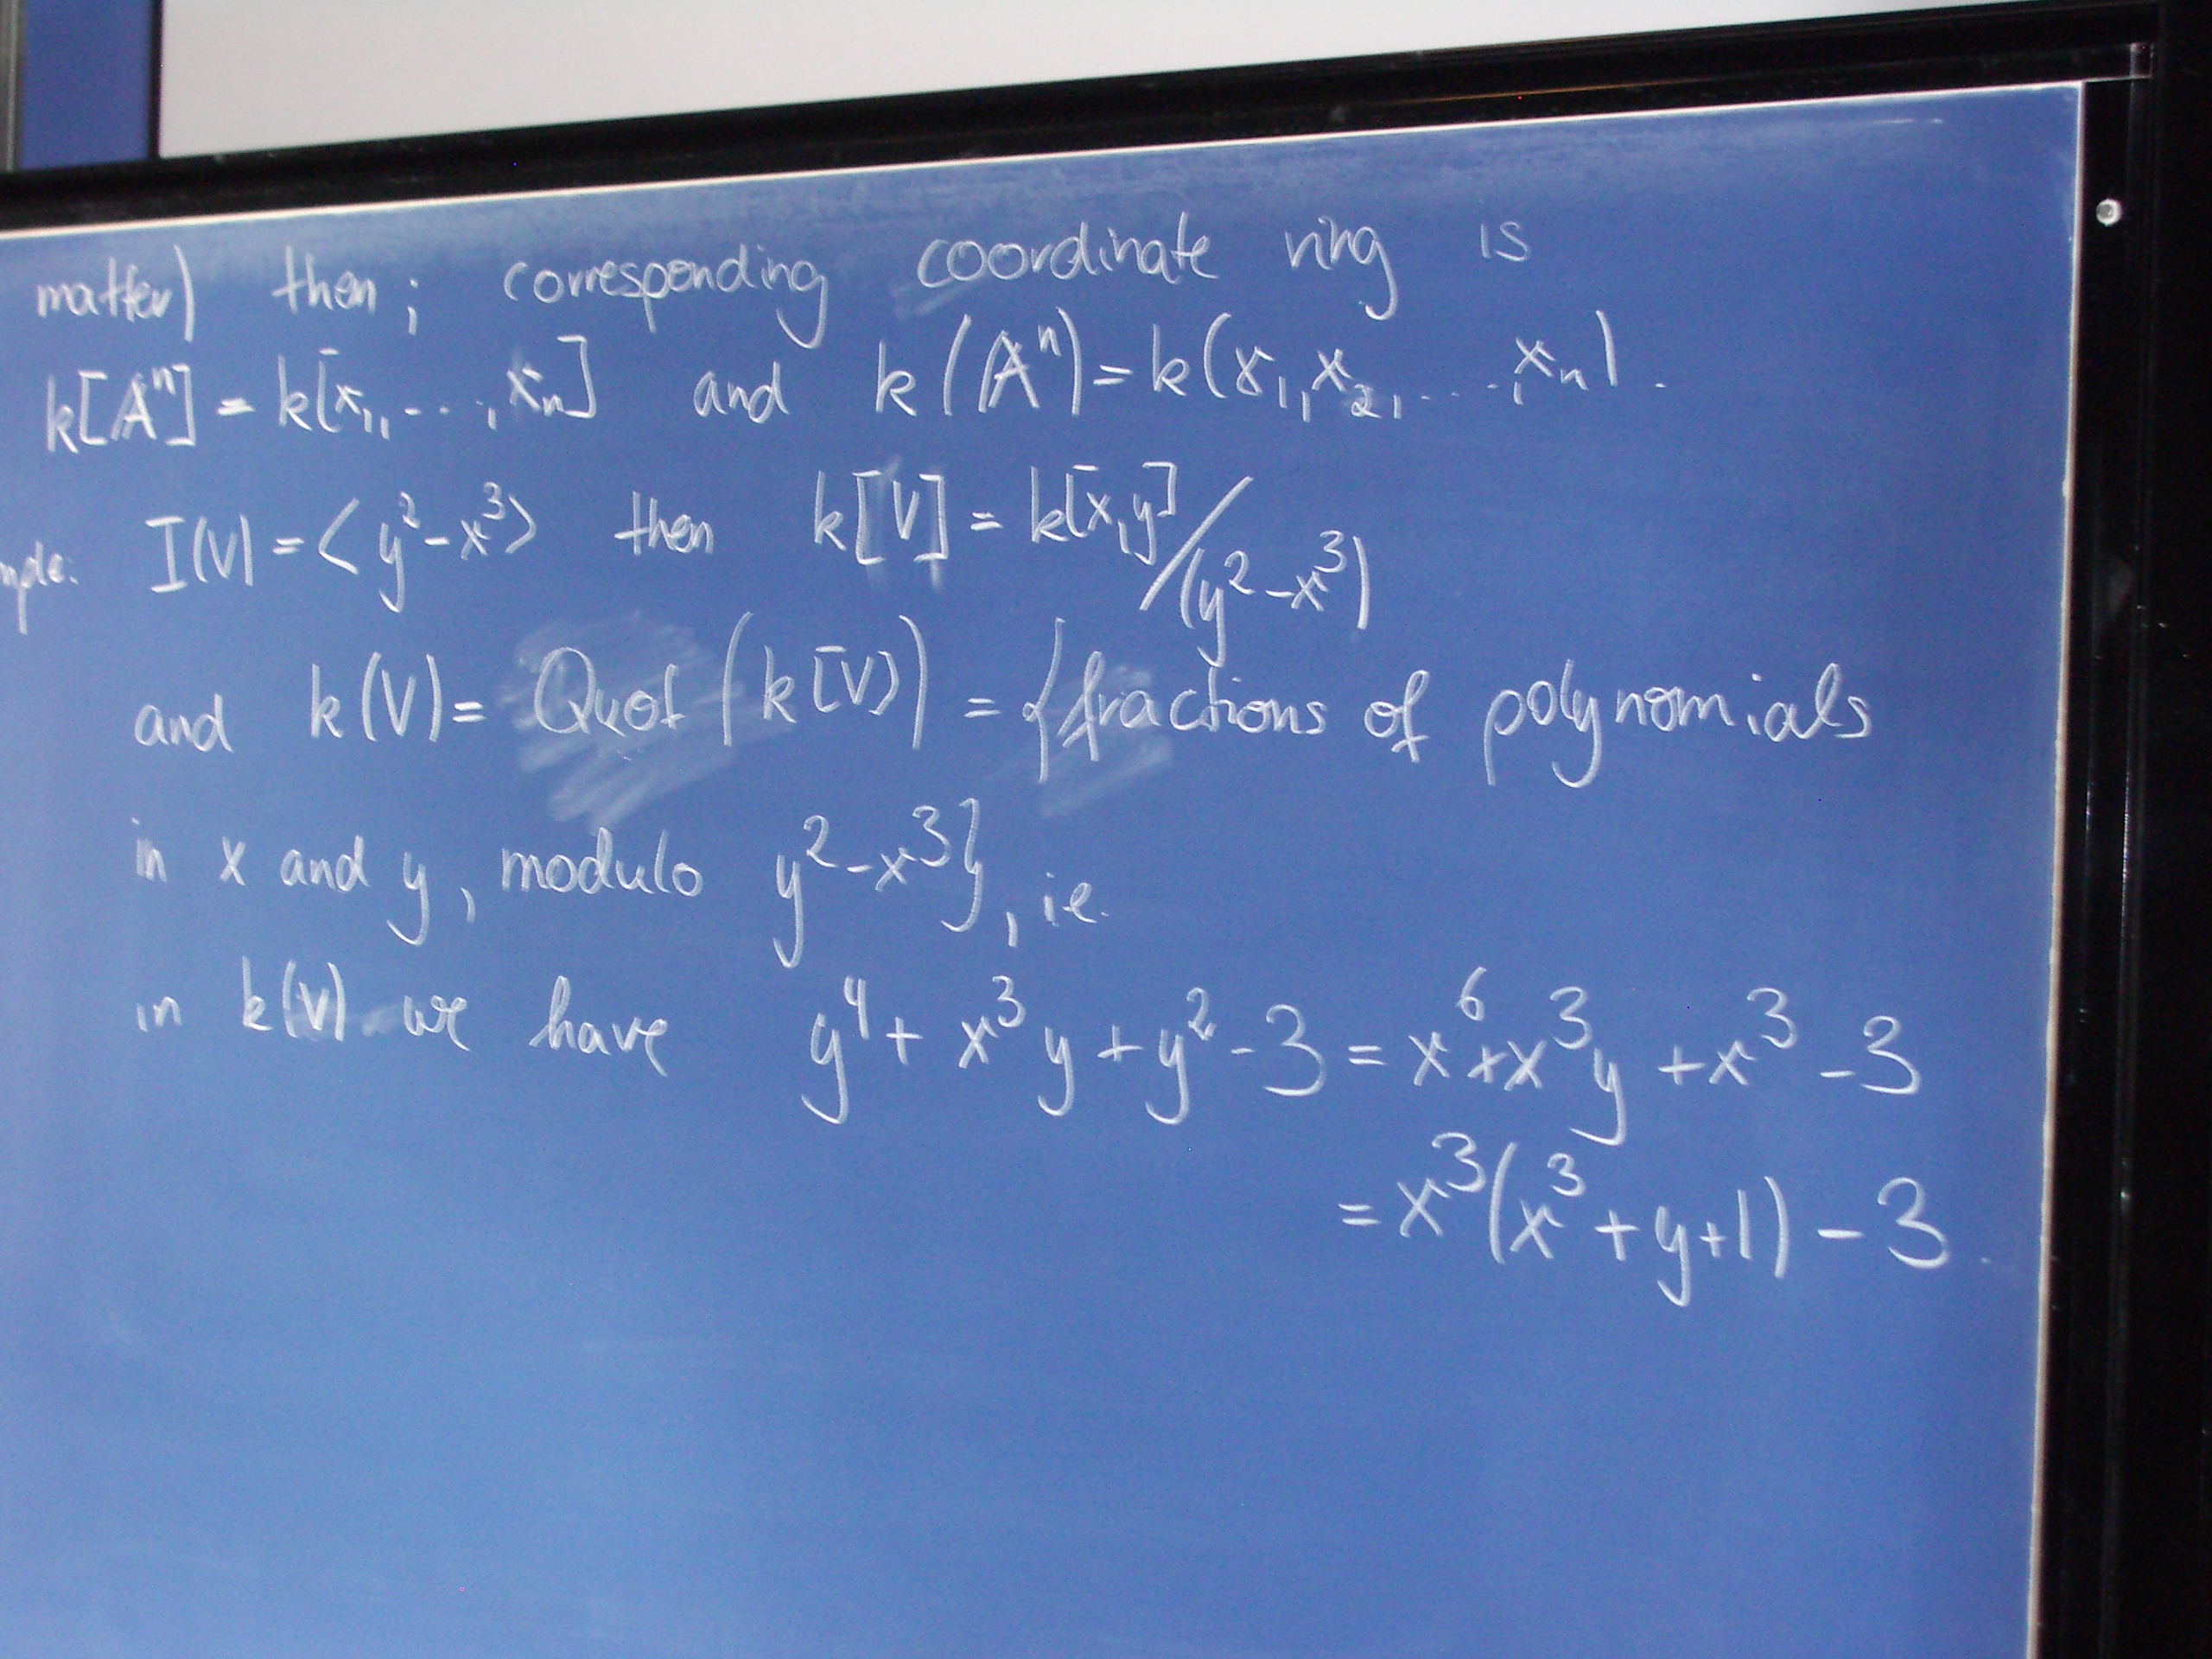 matter) then; corresponding coordinate ring is
k[Aⁿ] = k[x₁,...,xₙ] and k(Aⁿ)=k(x₁,x₂,....,xₙ).
I(V) = <y²-x³> then k[V] = k[x,y]/(y²-x³)
and k(V)= Quot (k[V]) = {fractions of polynomials
in x and y, modulo y²-x³}, ie.
in k(V) we have y⁴+ x³y+y²-3 = x⁶+x³y +x³-3
= x³(x³+y+1) - 3.